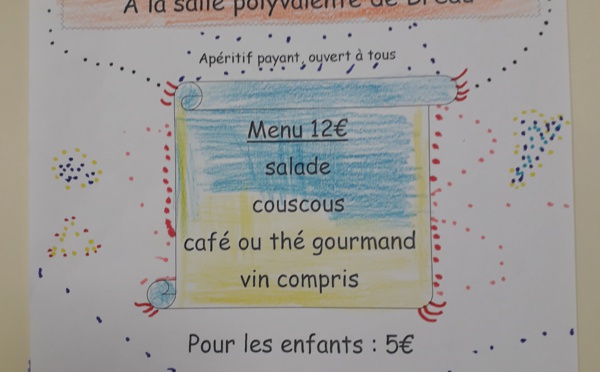 A la salle polyvalente de Bréau
Apéritif payant, ouvert à tous
Menu 12€
salade
couscous
café ou thé gourmand
vin compris
Pour les enfants : 5€